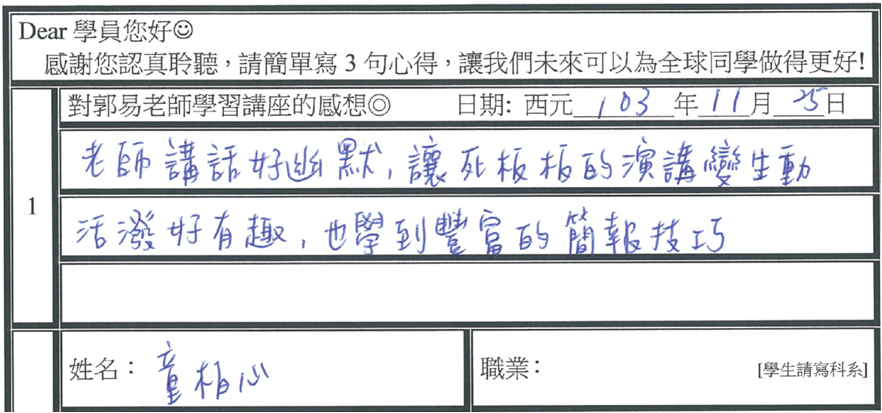 Dear 學員您好☺
感謝您認真聆聽，請簡單寫 3 句心得，讓我們未來可以為全球同學做得更好!
對郭易老師學習講座的感想◎ 日期: 西元 103 年 11 月 25 日
1
老師講話好幽默, 讓死板板的演講變生動
活潑好有趣, 也學到豐富的簡報技巧
姓名： 童柏心
職業： [學生請寫科系]